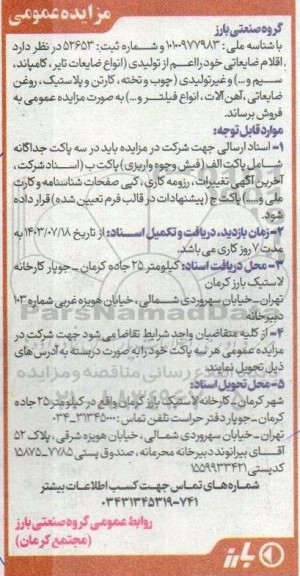 مزایده عمومی
گروه صنعتی بارز
با شناسه ملی : ۱۰۱۰۰۹۷۷۹۸۳ و شماره ثبت: ۵۲۶۵۳ در نظر دارد
اقلام ضایعاتی خود را اعم از تولیدی (انواع ضایعات تایر ، کامپاند،
سیم و...) و غیر تولیدی (چوب و تخته، کارتن و پلاستیک ، روغن
ضایعاتی ،آهن آلات ، انواع فیلتـر و...) به صورت مزایده عمومی به
فروش برساند.
موارد قابل توجه:
۱- اسناد ارسالی جهت شرکت در مزایده باید در سه پاکت جداگانه
شامل پاکت الف (فیش وجوه واریزی) پاکت ب (اسناد شرکت ،
آخرین آگهی تغییرات ، رزومه کاری ، کپی صفحات شناسنامه و کارت
ملی و....) پاکت ج (پیشنهادات در قالب فرم تعیین شده) قرار داده
شود.
۲- زمان بازدید، دریافت و تکمیل اسـناد: از تاریخ ۱۴۰۳/۰۷/۱۸ به
مدت ۷ روز کاری می باشد.
۳- محل دریافت اسناد: کیلومتر ۲۵ جاده کرمان - جوپار کارخانه
لاستیک بارز کرمان
تهران - خیابان سهروردی شمـالی ، خیابان هویزه غربی شماره ۱۰۳
دبیرخانه
۴- از کلیه متقاضیان واجد شرایط تقاضا می شود جهت شرکت در
مزایده عمومی هر سه پاکت خود را به صورت دربسته به آدرس های
ذیل تحویل نمایند
۵- محل تحویل اسناد:
شهر کرمان - کارخانه لاستیک بارز کرمان واقع در کیلومتر ۲۵ جاده
کرمان - جوپار دفتر حراست تلفن تماس : ۳۱۳۴۵۰۰۰-۰۳۴
تهران - خیابان سهروردی شمالی ، خیابان هویزه شرقی ، پلاک ۵۲
آقـای بیرانوند دبیرخانه محرمانه ، صندوق پستی ۷۷۸۵-۱۵۸۷۵
کدپستی ۱۵۵۹۹۳۳۴۲۱
شماره های تماس جهت کسب اطلاعات بیشتر
۰۳۴۳۱۳۴۵۳۱۹-۷۴۱
روابط عمومی گروه صنعتی بارز
(مجتمع کرمان)
بارز